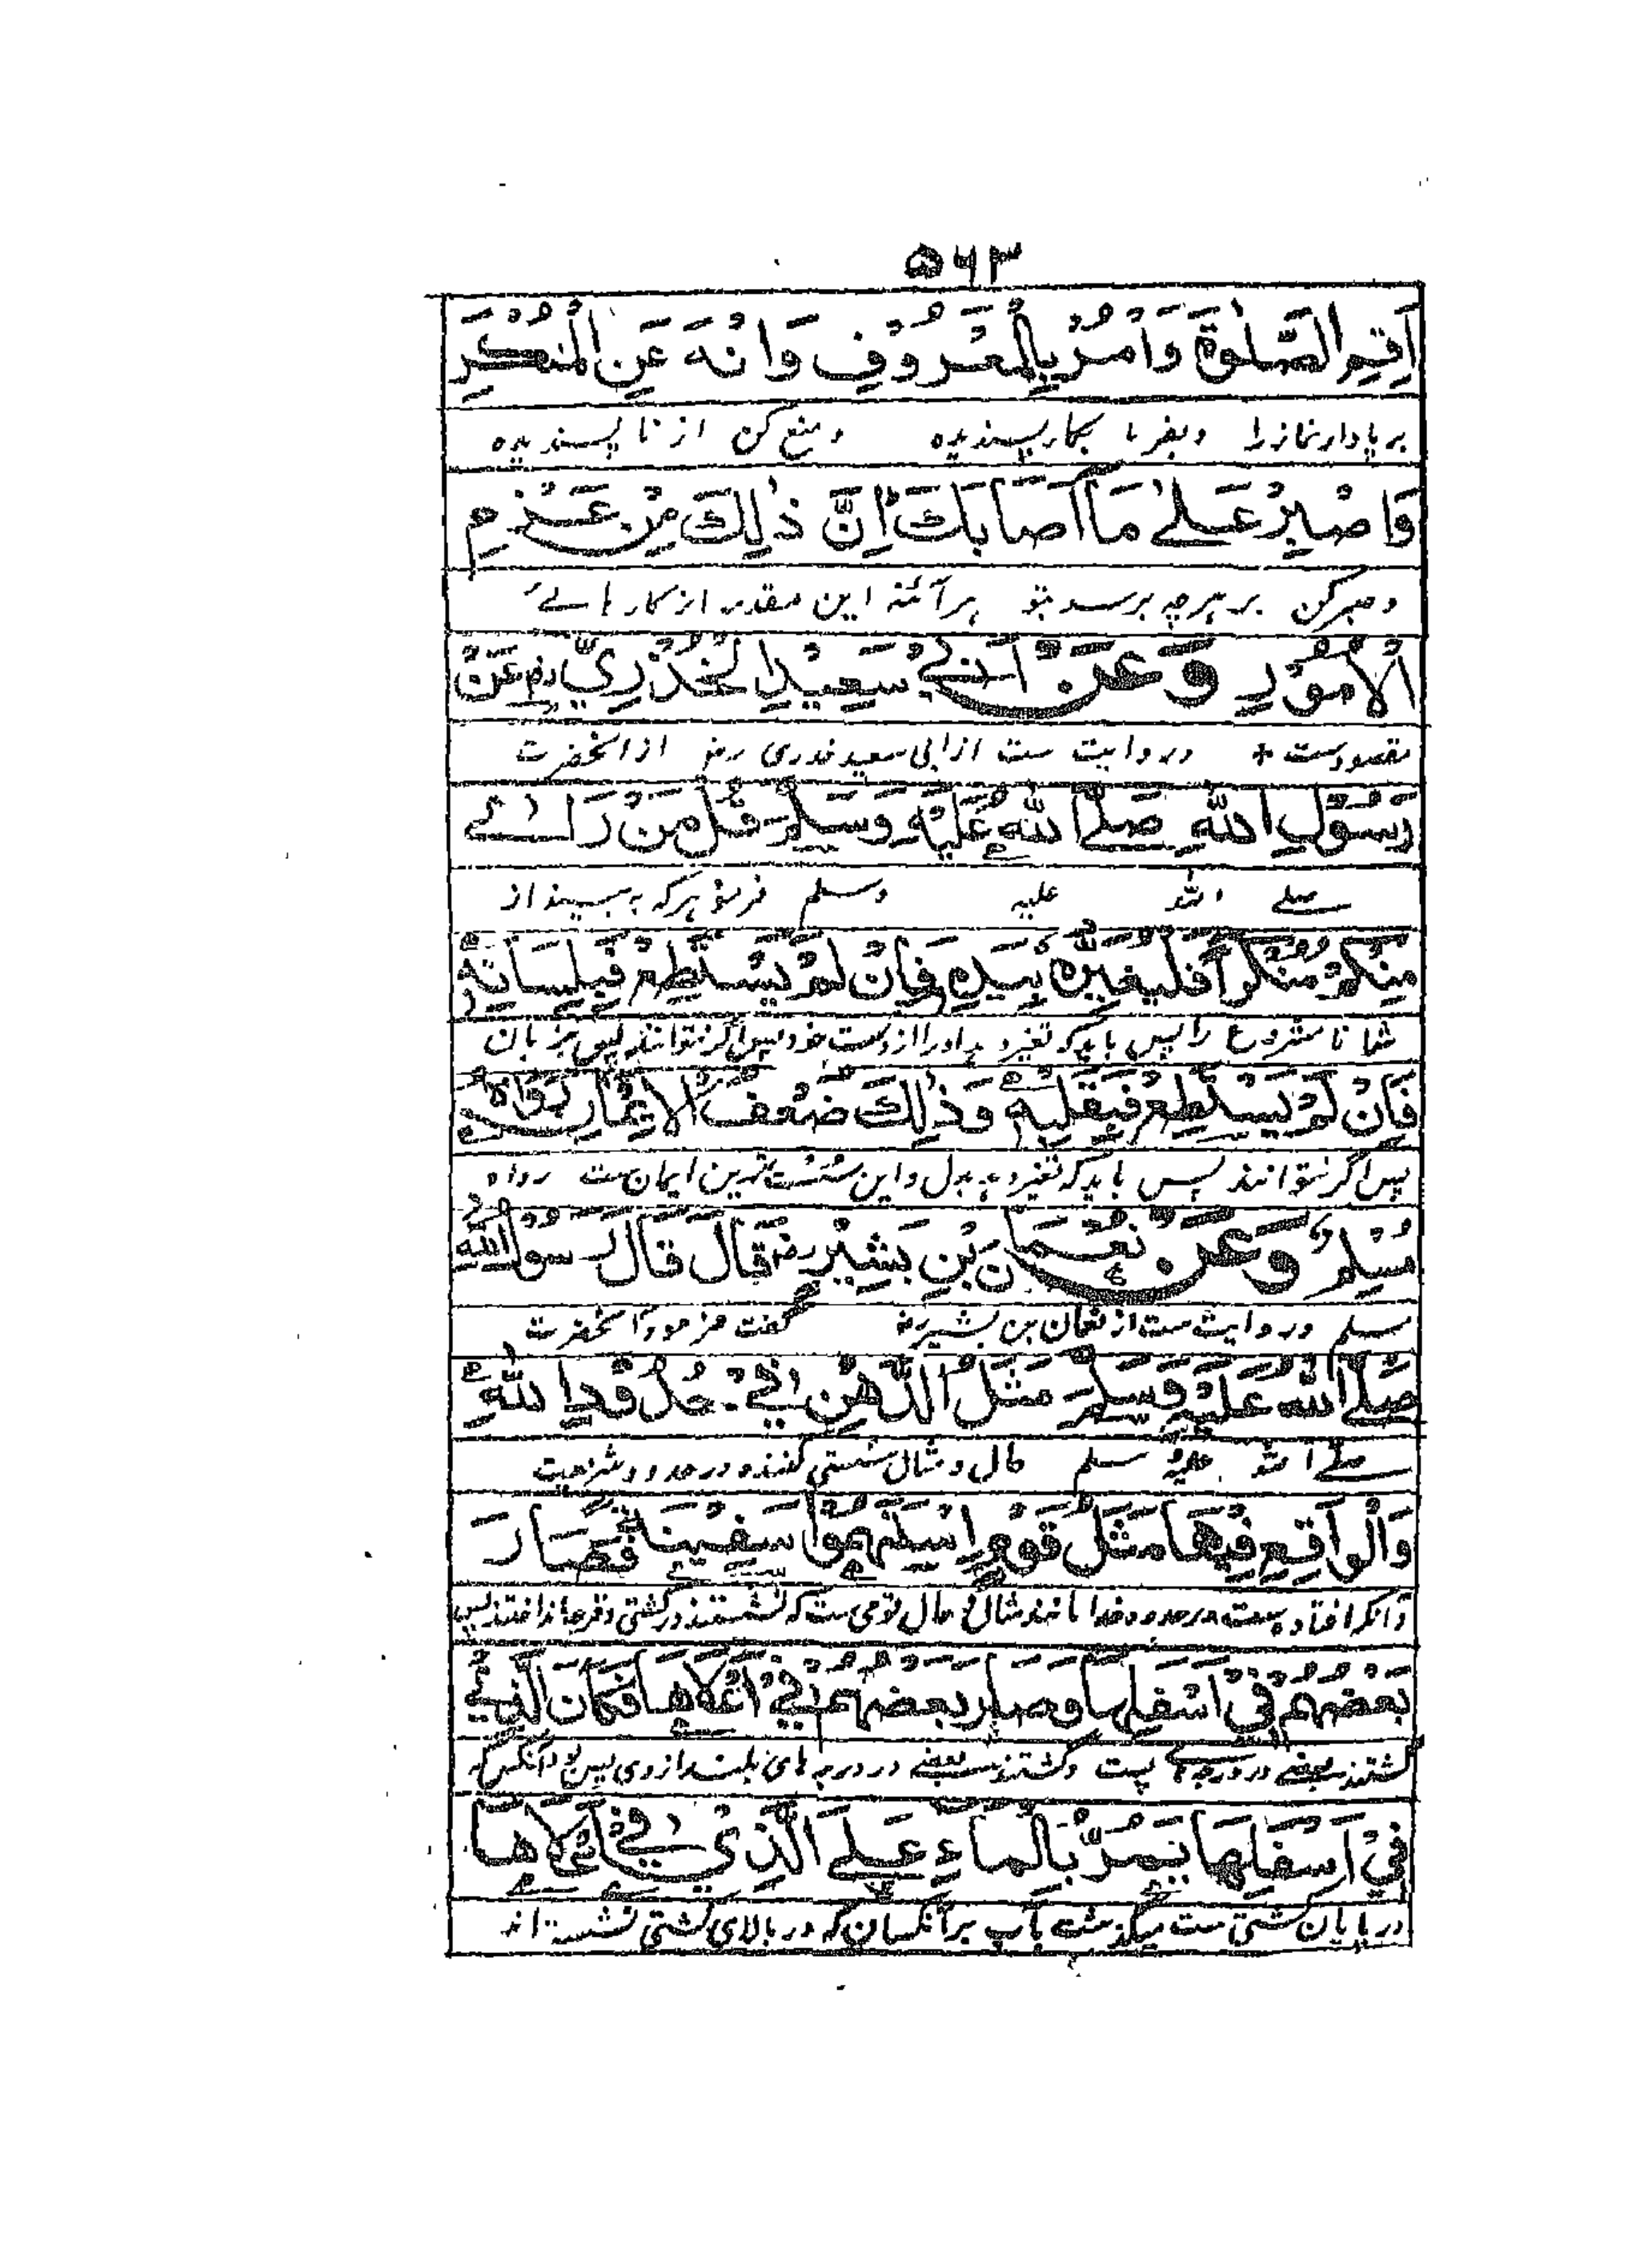 ۵۶۳
اَقِمِ الصَّلٰوةَ وَامُرْ بِالْمَعْرُوْفِ وَانْهَ عَنِ الْمُنْكَرِ
برپادار نماز را وبفرما بکار پسندیده ومنع کن از ناپسندیده
وَاصْبِرْ عَلٰے مَا اَصَابَكَ اِنَّ ذٰلِكَ مِنْ عَزْمِ
وصبر کن بر هرچه برسد بتو هرآئنه این مقدمه از کارهاے
الْاُمُوْرِ وَعَنْ اَبِیْ سَعِیْدِ الْخُدْرِیِّ رض عَنْ
مقصودست + وروایت ست از ابی سعید خدری رض از انحضرت
رَسُوْلِ اللهِ صَلَّی اللهُ عَلَیْهِ وَسَلَّمَ قَالَ مَنْ رَاٰے
صلے الله علیه وسلم فرمود هرکه به بیند از
مِنْكُمْ مُنْكَرًا فَلْیُغَیِّرْهُ بِیَدِهٖ فَاِنْ لَمْ یَسْتَطِعْ فَبِلِسَانِهٖ
شما نامشروع را پس باید که تغیر دهد اورا از دست خود پس اگر نتوانند پس بزبان
فَاِنْ لَمْ یَسْتَطِعْ فَبِقَلْبِهٖ وَذٰلِكَ ضْعَفُ الْاِیْمَانِ رَوَاهُ
پس اگر نتوانند پس باید که تغیر دهد بدل واین سست ترین ایمان ست رواه
مُسْلِمٌ وَعَنْ نُعْمَانَ بْنِ بَشِیْرٍ رض قَالَ قَالَ رَسُوْلُ اللهِ
مسلم وروایت ست از نعمان بن بشیر رض گفت فرمود آنحضرت
صَلَّی اللهُ عَلَیْهِ وَسَلَّمَ مَثَلُ الْمُدْهِنِ فِیْ حُدُوْدِ اللهِ
صلے الله علیه وسلم حال ومثال سستی کننده در حدود شریعت
وَالْوَاقِعِ فِیْهَا مَثَلُ قَوْمٍ اِسْتَهَمُوْا سَفِیْنَةً فَصَارَ
وآنکه افتاده ست در حدود خدا مانند مثال و حال قومی ست که نشستند در کشتی وقرعه انداختند پس
بَعْضُهُمْ فِیْ اَسْفَلِهَا وَصَارَ بَعْضُهُمْ فِیْ اَعْلَاهَا فَكَانَ الَّذِیْ
گشتند بعضے در درجه هاے پست وگشتند بعضے در درجه های بلند ازوی پس بود آنکس که
فِیْ اَسْفَلِهَا یَمُرُّ بِالْمَاءِ عَلَی الَّذِیْ فِیْ اَعْلَاهَا
در پایان کشتی ست میگذشت بآب بر آنکسان که در بالای کشتی نشسته اند